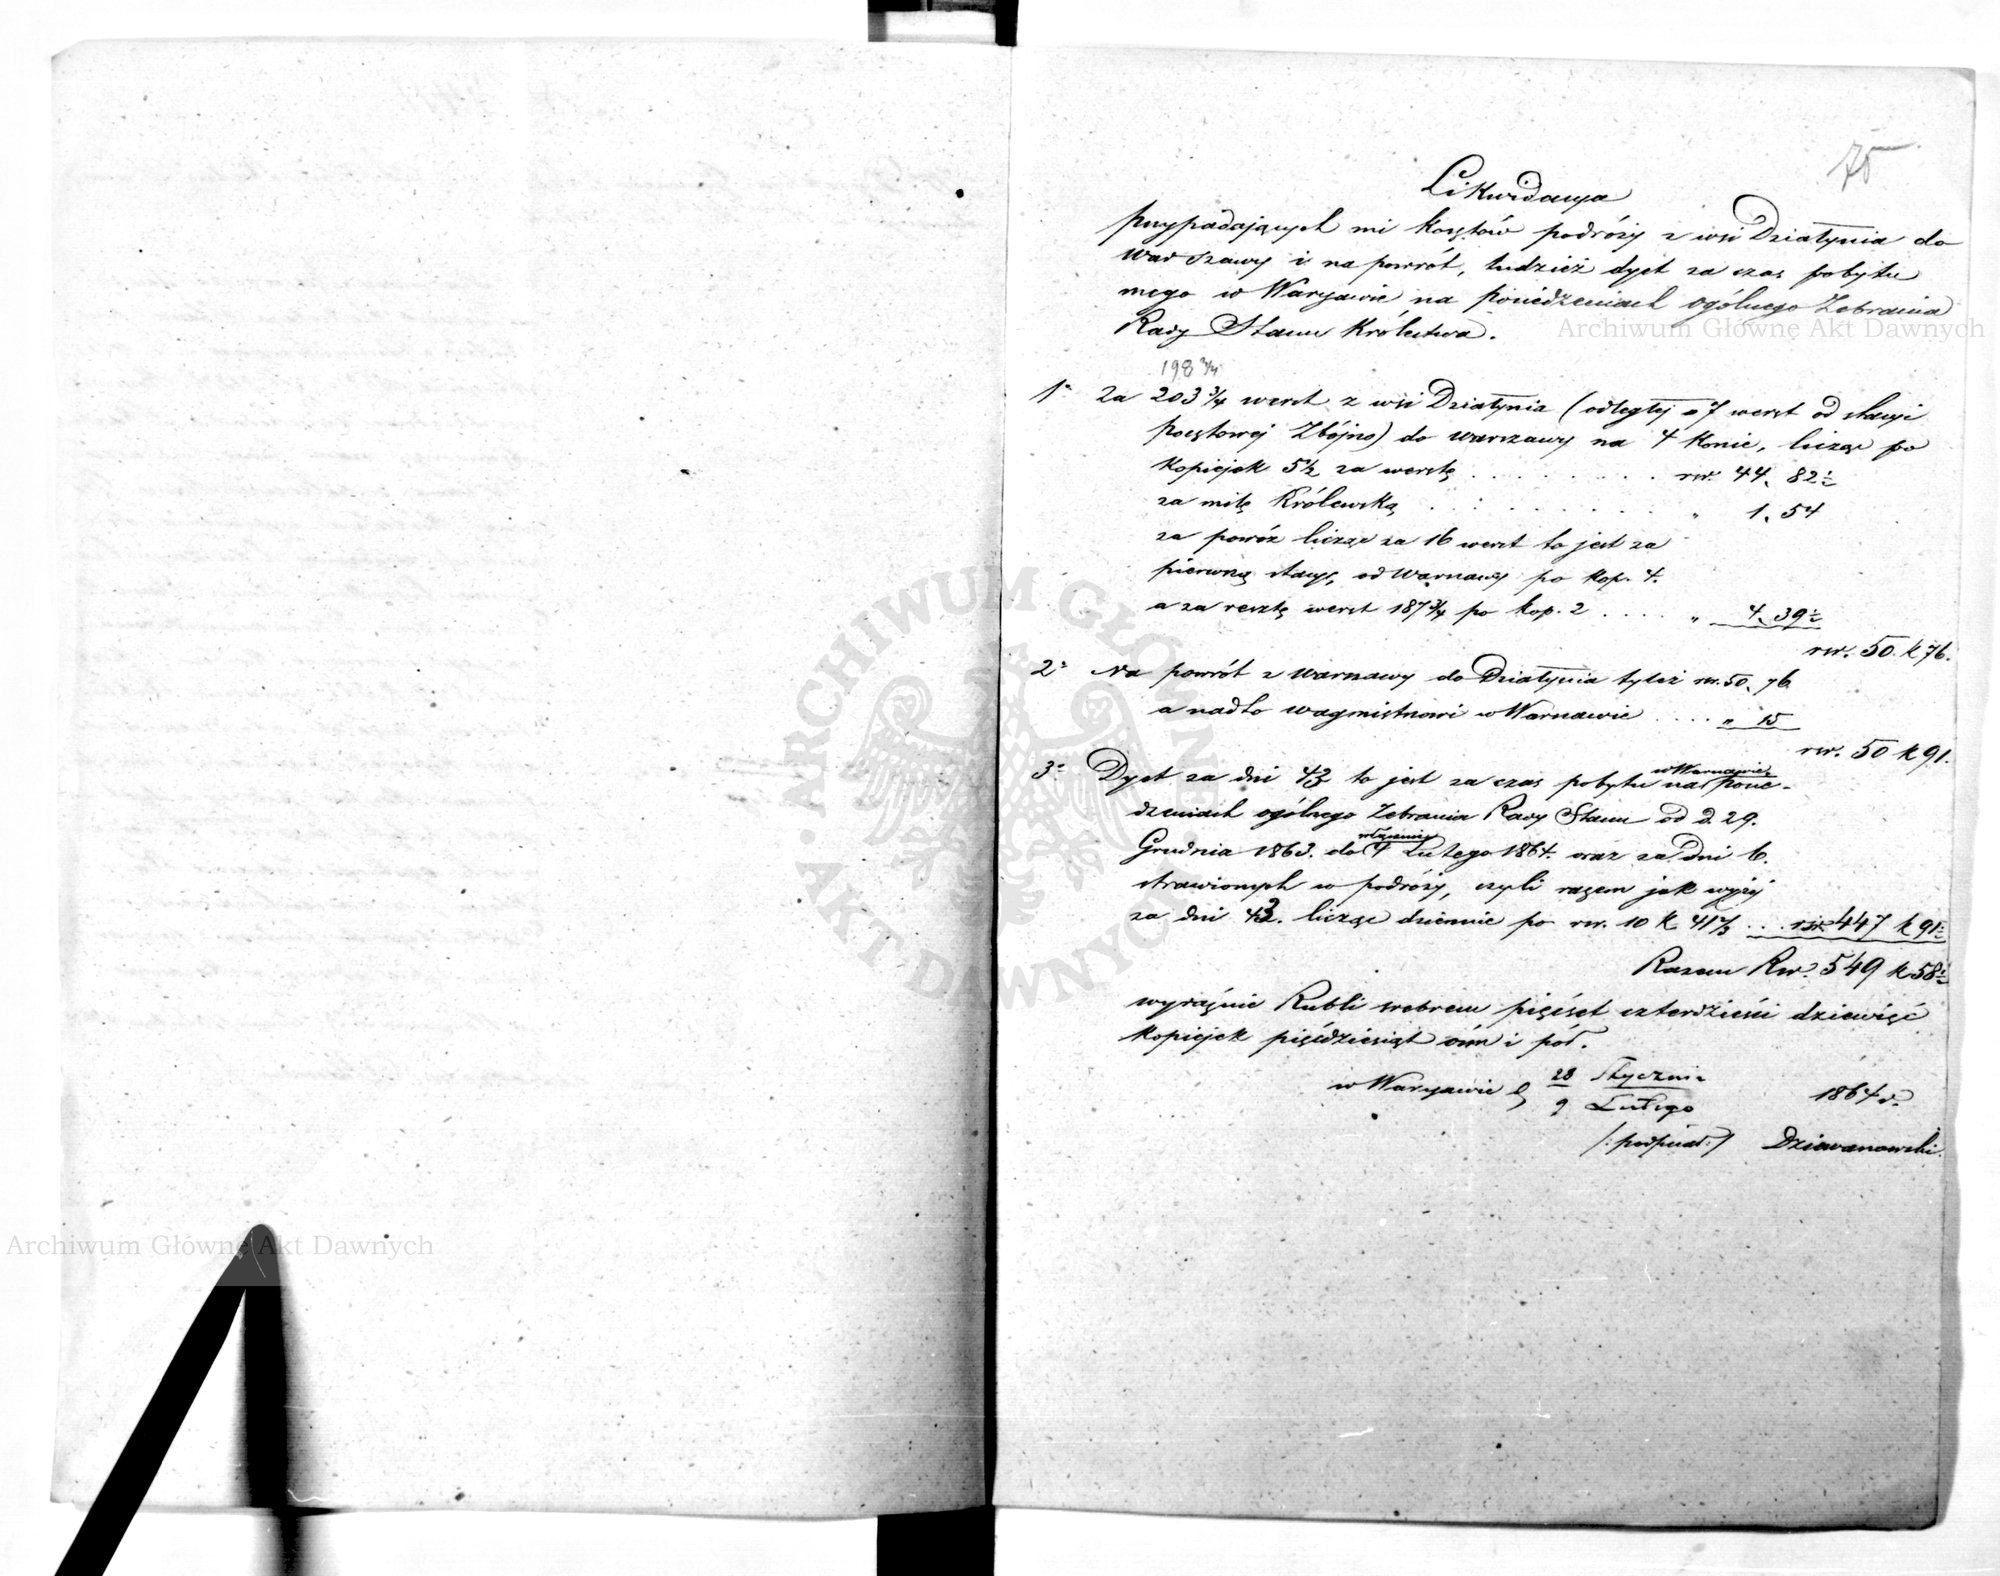 75
Likwidacya
przypadających mi kosztów podróży z wsi Działynia do
Warszawy i na powrót, tudzież dyet za czas pobytu
mego w Warszawie na posiedzeniach ogólnego Zebrania
Rady Stanu Królestwa.
198 3/4
1° Za 203 3/4 werst z wsi Działynia (odległej o 7 werst od stacyi
pocztowej Zbójno) do Warszawy na 4 konie, licząc po
kopiejek 5½ za werstę . . . . . . . . rsr. 44, 82½
za milę Królewską . . . . . . . . . „ 1, 54
za powóz licząc za 16 werst to jest za
pierwszą stacyę od Warszawy po kop. 4.
a za resztę werst 187 3/4 po kop. 2 . . . . „ 4, 39½
rsr. 50 k 76.
2° Na powrót z Warszawy do Działynia tyleż rsr. 50, 76
a nadto wagmistrzowi w Warszawie . . . . „ 15
rsr. 50 k 91.
3° Dyet za dni 43 to jest za czas pobytu w Warszawie na posie-
dzeniach ogólnego Zebrania Rady Stanu od d. 29.
Grudnia 1863. do włącznie 4 Lutego 1864. oraz za dni 6.
strawionych w podróży, czyli razem jak wyżej
za dni 43. licząc dziennie po rsr. 10 k 41 2/3 . . . rsr. 447 k 91½
Razem Rsr. 549 k 58½
wyraźnie Rubli srebrem pięćset czterdzieści dziewięć
kopiejek pięćdziesiąt ośm i pół.
w Warszawie d. 28 Stycznia / 9 Lutego 1864 r.
/: podpisał :/ Dziewanowski.
Archiwum Główne Akt Dawnych
Archiwum Główne Akt Dawnych
ARCHIWUM GŁÓWNE · AKT DAWNYCH ·